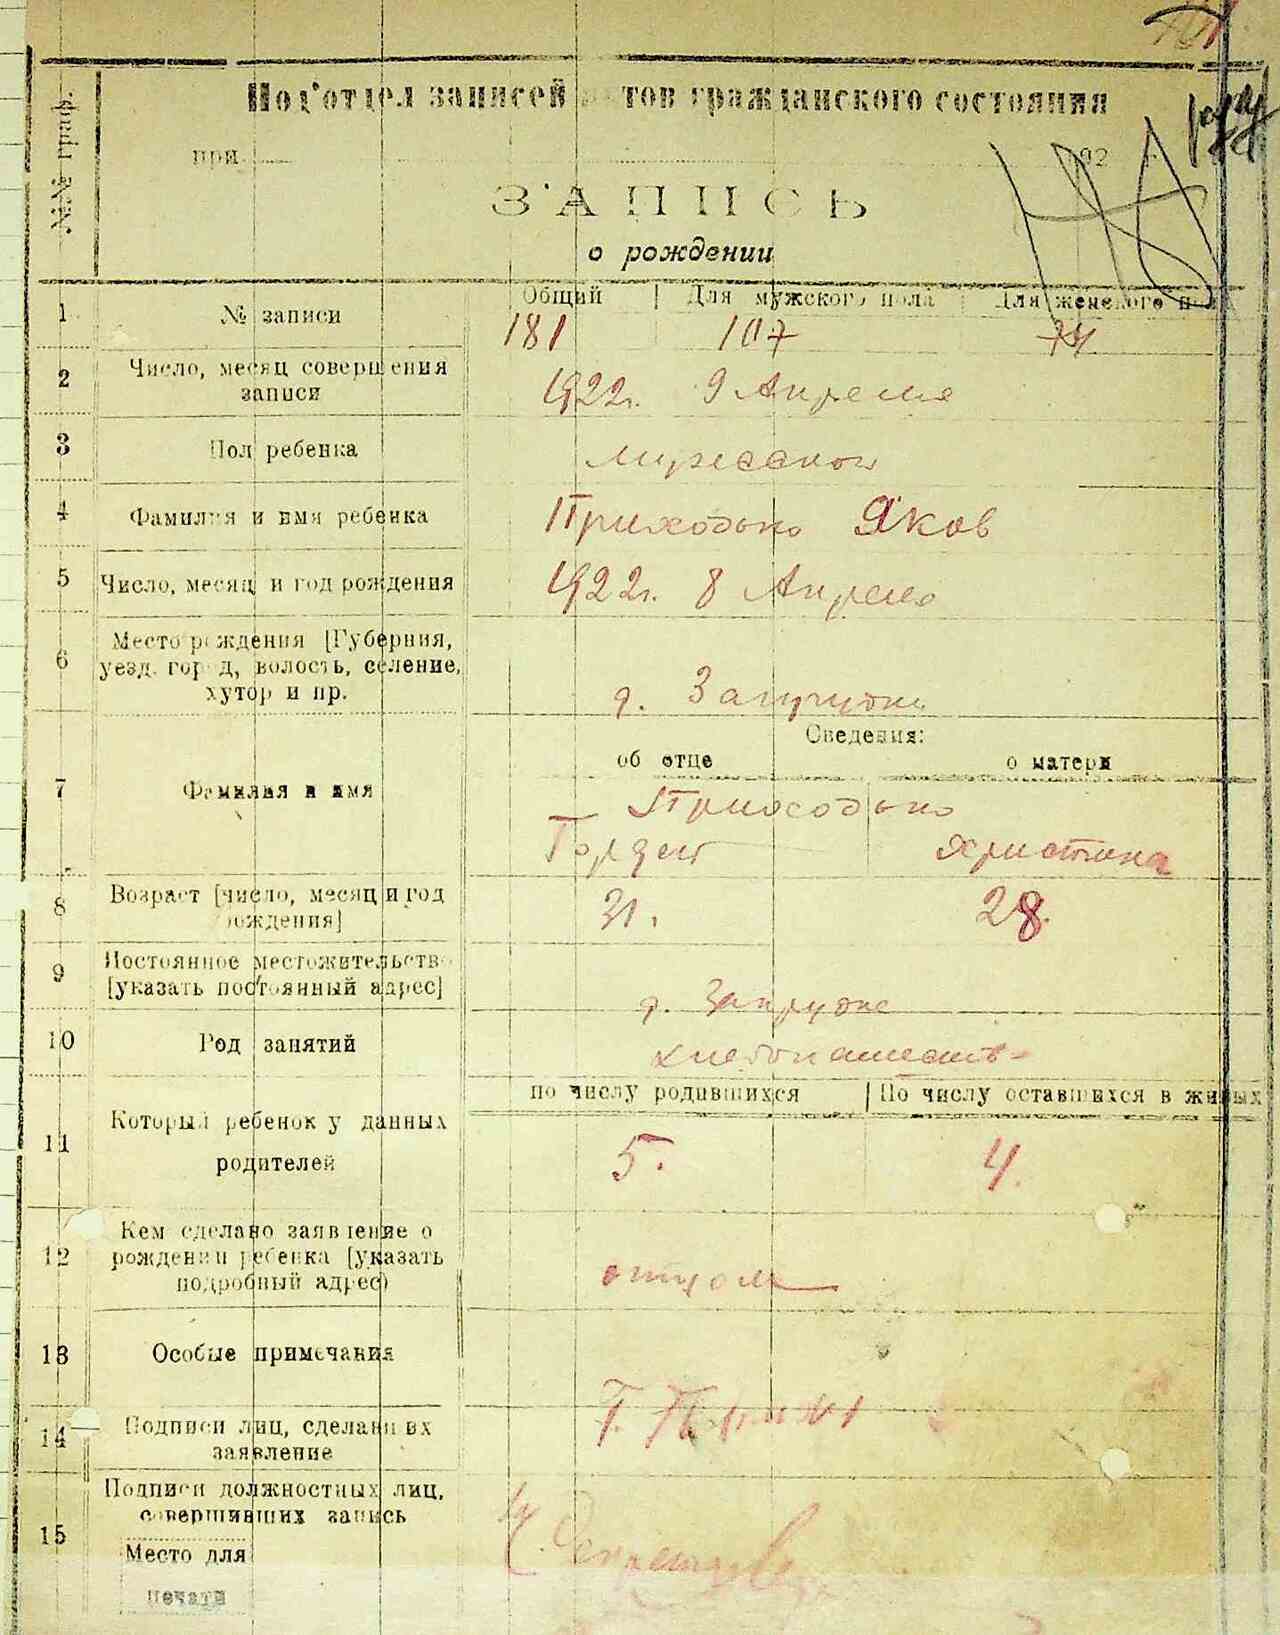 №№ граф.
Под'отдел записей тов гражданского состояния
при 192 г.
ЗАПИСЬ
о рождении
Общий Для мужского пола Для женского пол
1 № записи 181 107 74
2 Число, месяц совершения
записи 1922г. 9 Апреля
3 Пол ребенка мужской
4 Фамилия и имя ребенка Приходько Яков
5 Число, месяц и год рождения 1922г. 8 Апреля
6 Место рождения [Губерния,
уезд, город, волость, селение,
хутор и пр. д. Запрудки
Сведения:
об отце о матери
7 Фамилия и имя Приходько
Гордей Христина
8 Возраст [число, месяц и год
рождения] 31. 28.
9 Постоянное местожительство
[указать постоянный адрес] д. Запрудки
10 Род занятий хлебопашеств-
по числу родившихся По числу оставшихся в живых
11 Которыл ребенок у данных
родителей 5. 4.
12 Кем сделано заявление о
рождении ребенка [указать
подробный адрес) отцом
13 Особые примечания
14 Подписи лиц, сделавших
заявление Г. Прих
15 Подписи должностных лиц,
совершивших запись
Место для
печати